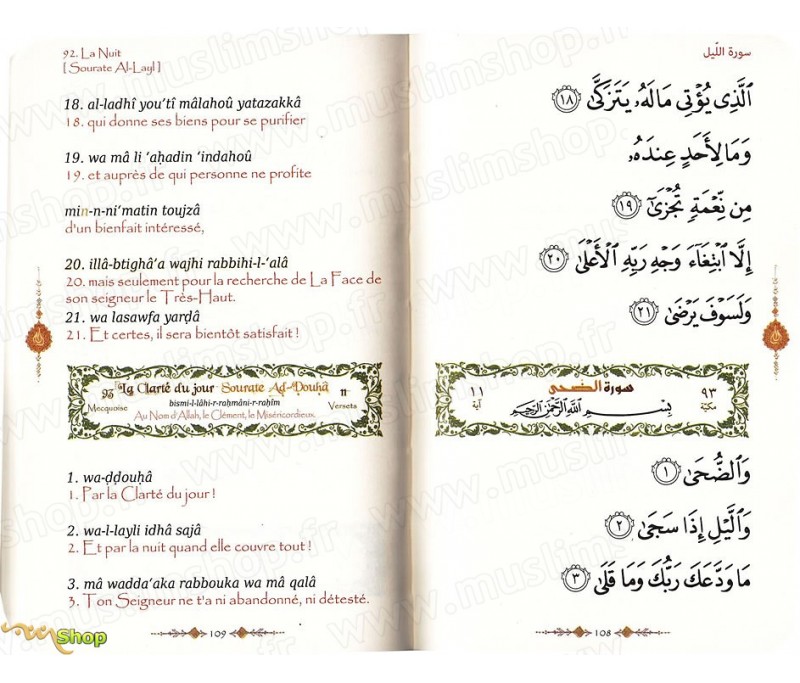 92. La Nuit
[ Sourate Al-Layl ]
18. al-ladhî you’tî mâlahoû yatazakkâ
18. qui donne ses biens pour se purifier
19. wa mâ li ‘aḥadin ‘indahoû
19. et auprès de qui personne ne profite
min-n-ni‘matin toujzâ
d'un bienfait intéressé,
20. illâ-btighâ’a wajhi rabbihi-l-’alâ
20. mais seulement pour la recherche de La Face de
son seigneur le Très-Haut.
21. wa lasawfa yarḍâ
21. Et certes, il sera bientôt satisfait !
93 La Clarté du jour Sourate Aḍ-Ḍouḥâ 11
Mecquoise bismi-l-lâhi-r-raḥmâni-r-raḥîm Versets
Au Nom d'Allah, le Clément, le Miséricordieux.
1. wa-ḍḍouḥâ
1. Par la Clarté du jour !
2. wa-l-layli idhâ sajâ
2. Et par la nuit quand elle couvre tout !
3. mâ wadda‘aka rabbouka wa mâ qalâ
3. Ton Seigneur ne t'a ni abandonné, ni détesté.
109
سورة الليل
ٱلَّذِى يُؤْتِى مَالَهُۥ يَتَزَكَّىٰ ١٨
وَمَا لِأَحَدٍ عِندَهُۥ
مِن نِّعْمَةٍ تُجْزَىٰٓ ١٩
إِلَّا ٱبْتِغَآءَ وَجْهِ رَبِّهِ ٱلْأَعْلَىٰ ٢٠
وَلَسَوْفَ يَرْضَىٰ ٢١
٩٣ سورة الضحى ١١
مكية بِسْمِ ٱللَّهِ ٱلرَّحْمَٰنِ ٱلرَّحِيمِ آية
وَٱلضُّحَىٰ ١
وَٱلَّيْلِ إِذَا سَجَىٰ ٢
مَا وَدَّعَكَ رَبُّكَ وَمَا قَلَىٰ ٣
108
Shop
www.muslimshop.fr